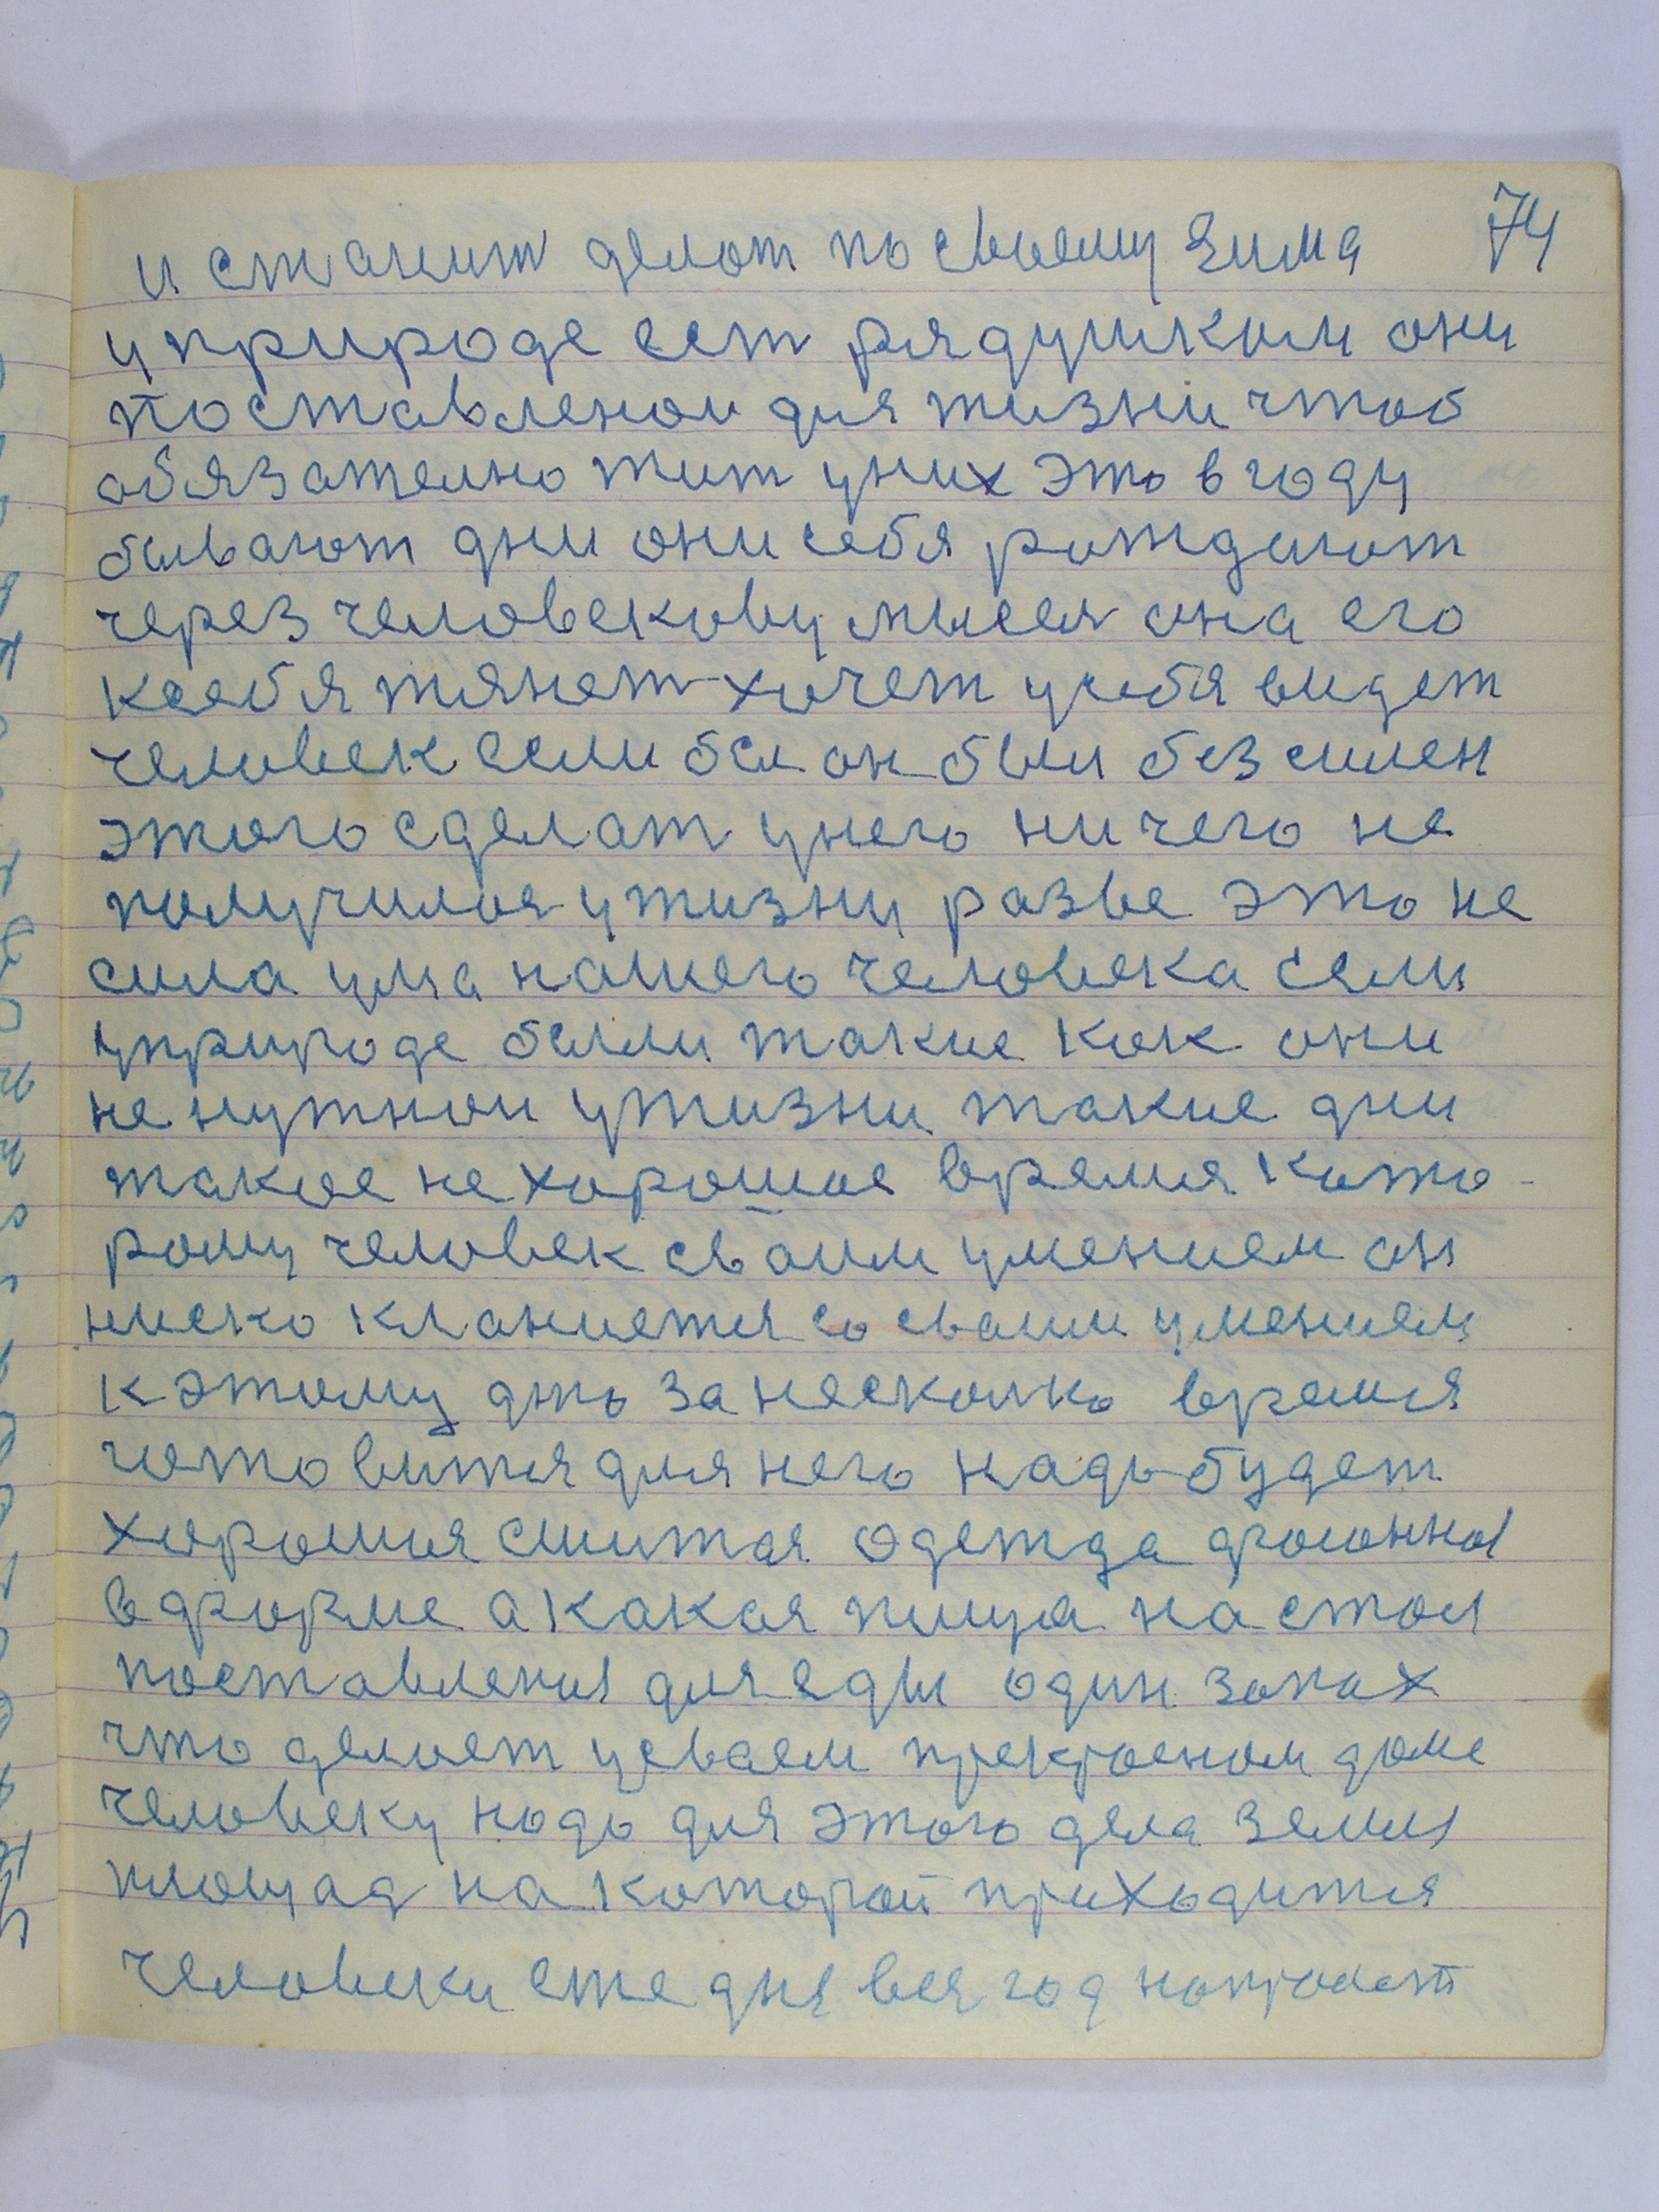 74
и станит делат по своему Зима
у природе ест рядушком они
поставленои для жизни чтоб
обязателно жит уних это в году
бывают дни они себя рождают
через человекову мысля она его
ксебя тянет хочет усебя видет
человек если бы он был безсилен
этого сделат унего ничего не
получилоя ужизни разве это не
сила ума нашего человека если
уприроде были такие как они
не нужнои ужизни такие дни
такое не хорошое время кото-
рому человек сваим умением он
ниско кланиется со сваим умением
кэтому дню за несколко время
готовится для него надо будет
хорошия сшитая одежда фасонная
в форме а какая пища на стол
поставленыя для еды один запах
что делает усваем прекрасном доме
человеку надо для этого дела земля
площад на которой приходится
человеки еже дня вся год